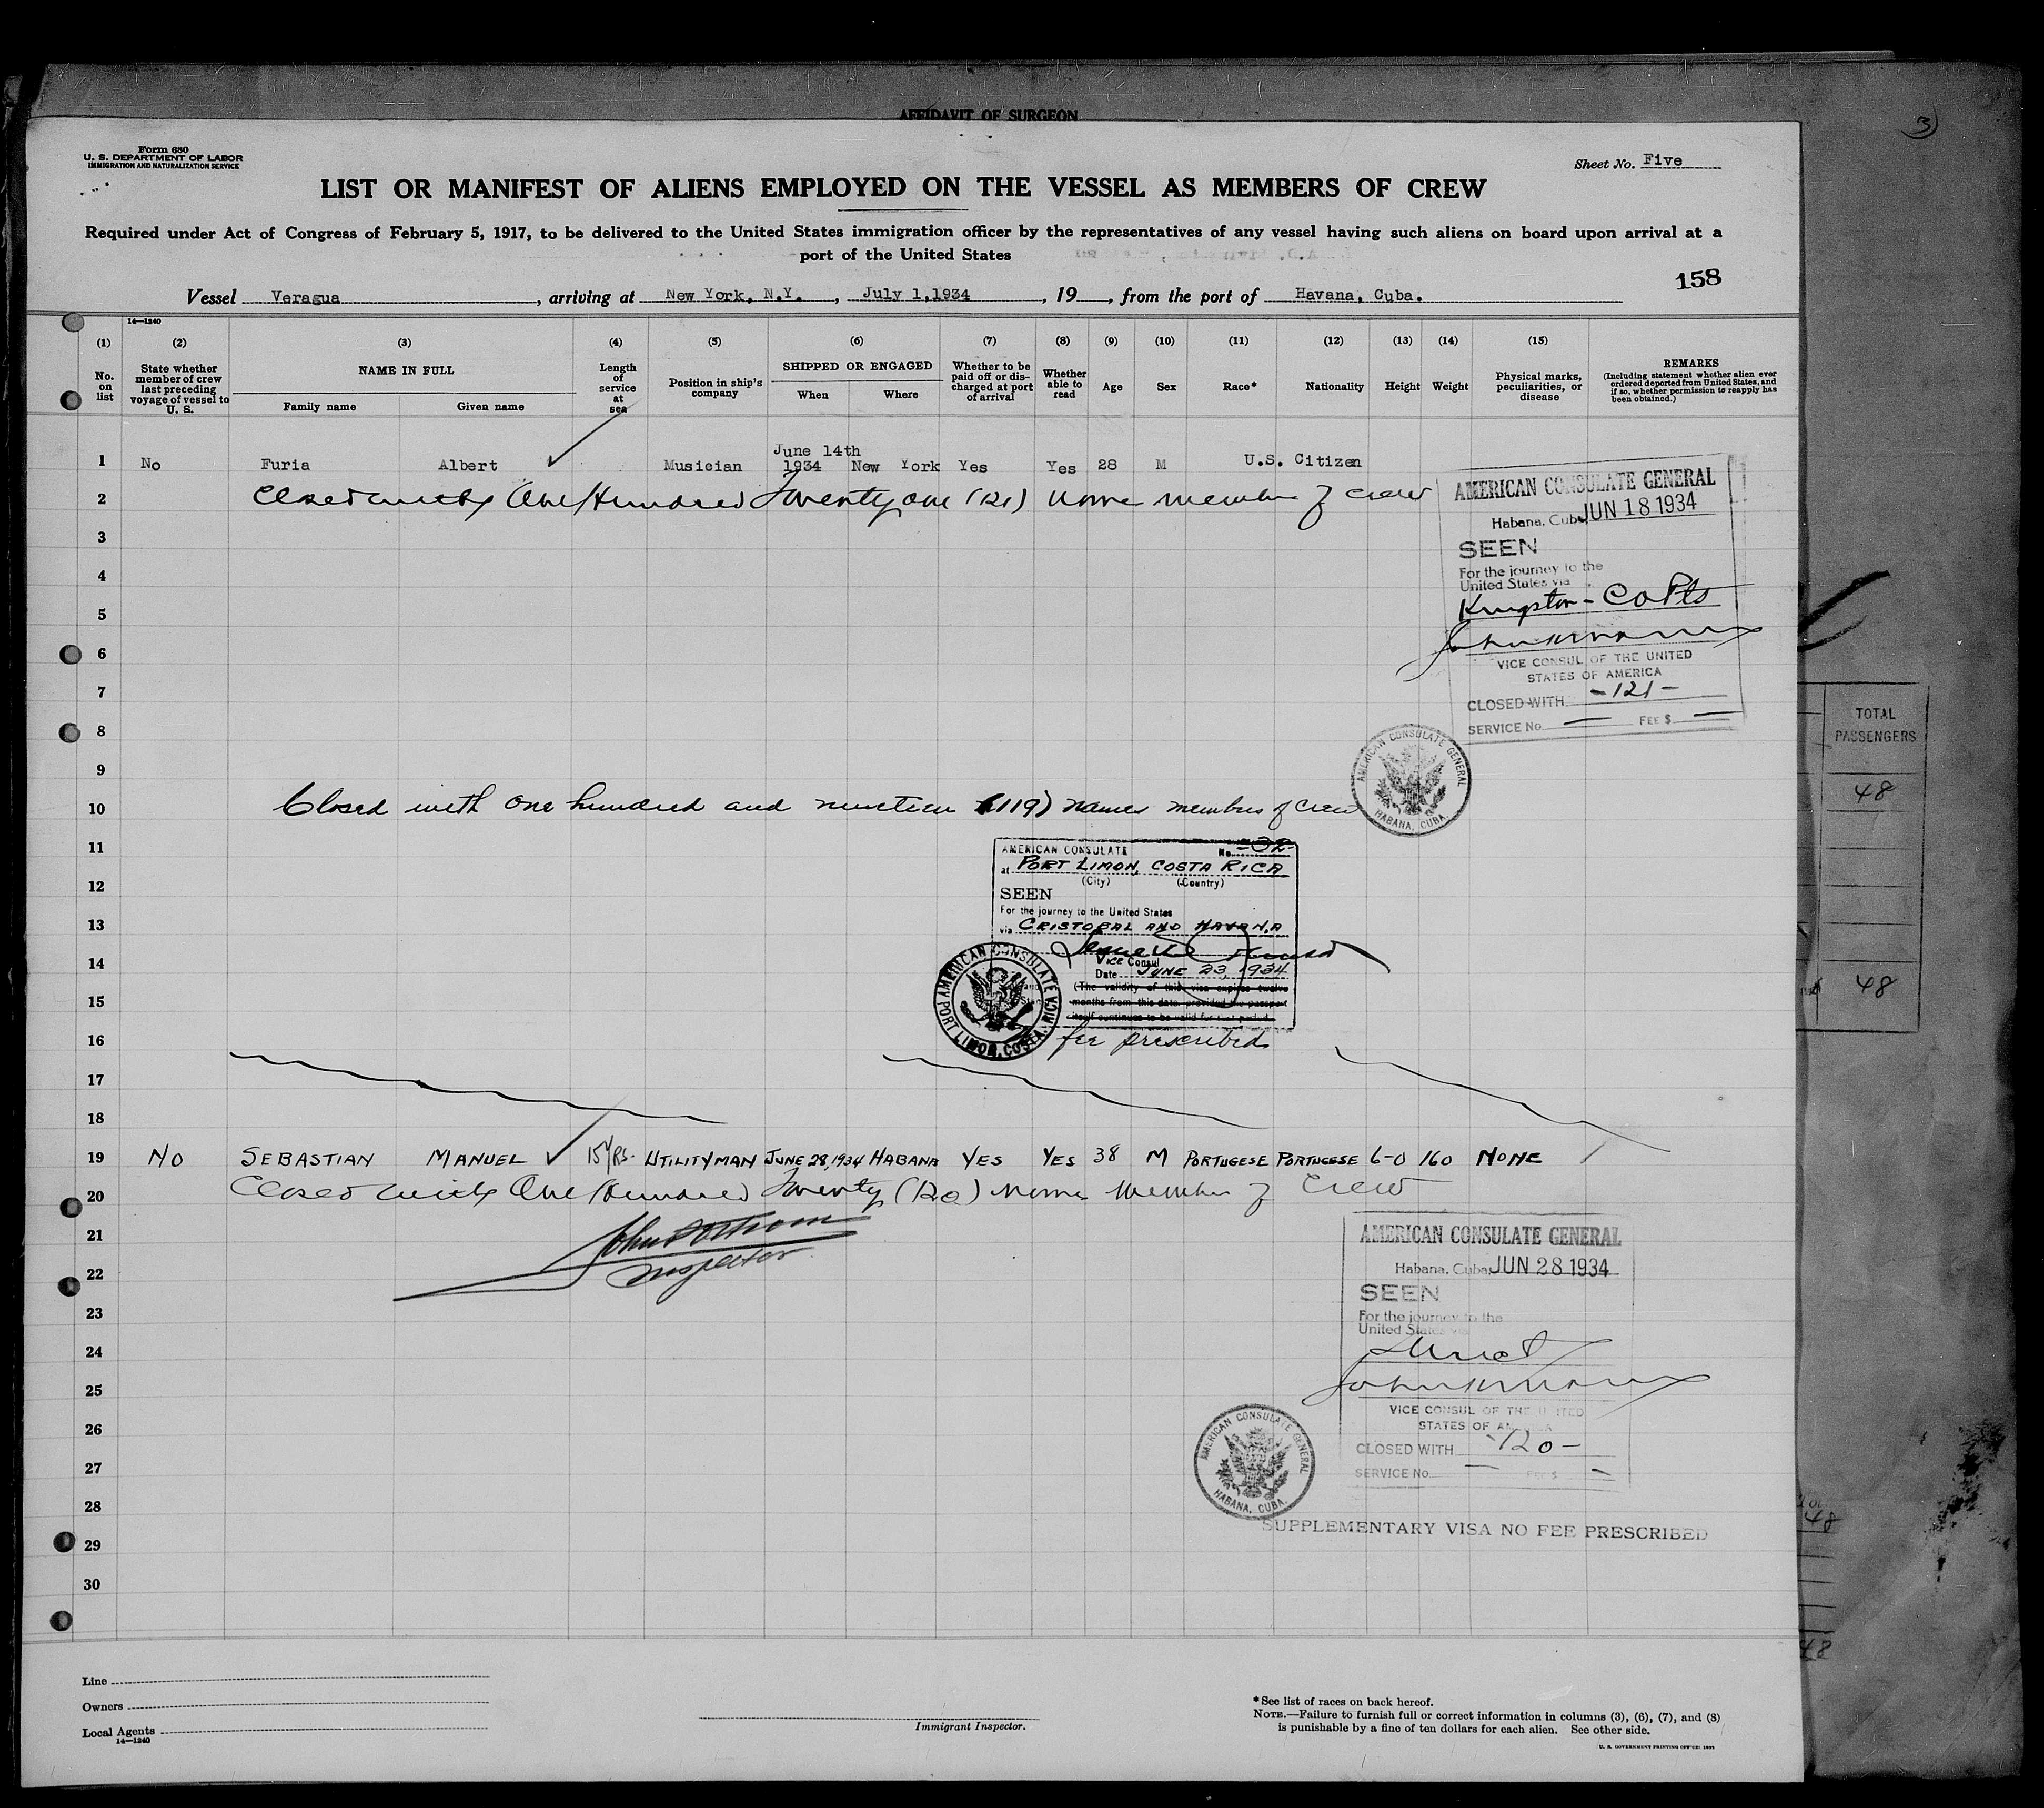 AFFIDAVIT OF SURGEON
3
Form 680
U. S. DEPARTMENT OF LABOR
IMMIGRATION AND NATURALIZATION SERVICE
Sheet No. Five
LIST OR MANIFEST OF ALIENS EMPLOYED ON THE VESSEL AS MEMBERS OF CREW
Required under Act of Congress of February 5, 1917, to be delivered to the United States immigration officer by the representatives of any vessel having such aliens on board upon arrival at a
port of the United States
158
Vessel Veragua, arriving at New York, N.Y., July 1,1934, 19, from the port of Havana, Cuba.
14—1240
(1) (2) (3) (4) (5) (6) (7) (8) (9) (10) (11) (12) (13) (14) (15)
No. on list
State whether member of crew last preceding voyage of vessel to U. S.
NAME IN FULL
Family name Given name
Length of service at sea
Position in ship's company
SHIPPED OR ENGAGED
When Where
Whether to be paid off or discharged at port of arrival
Whether able to read
Age
Sex
Race*
Nationality
Height
Weight
Physical marks, peculiarities, or disease
REMARKS
(Including statement whether alien ever ordered deported from United States, and if so, whether permission to reapply has been obtained.)
1 No Furia Albert Musician June 14th 1934 New York Yes Yes 28 M U.S. Citizen
2 Closed with One Hundred Twenty one (121) name member of crew
AMERICAN CONSULATE GENERAL
Habana, Cuba JUN 18 1934
SEEN
For the journey to the
United States via
Kingston - CoPts
VICE CONSUL OF THE UNITED
STATES OF AMERICA
CLOSED WITH -121-
SERVICE No. — FEE $ —
AMERICAN CONSULATE GENERAL
HABANA, CUBA.
3
4
5
6
7
8
9
10 Closed with one hundred and nineteen (119) names members of crew
11
12
13
14
15
16
17
18
AMERICAN CONSULATE No.
at PORT LIMON, COSTA RICA
(City) (Country)
SEEN
For the journey to the United States
via CRISTOBAL AND HAVANA
Vice Consul
Date JUNE 23, 1934
(The validity of this visa expires twelve
months from this date provided the passport
itself continues to be valid for that period.
fee prescribed
AMERICAN CONSULATE
PORT LIMON, COSTA RICA
19 NO SEBASTIAN MANUEL 15 YRS. UTILITYMAN JUNE 28, 1934 HABANA YES YES 38 M PORTUGESE PORTUGESE 6-0 160 NONE
20 Closed with One Hundred Twenty (120) name member of crew
21
22 Inspector
23
24
25
26
27
28
29
30
AMERICAN CONSULATE GENERAL
Habana, Cuba JUN 28 1934
SEEN
For the journey to the
United States via
Direct
VICE CONSUL OF THE UNITED
STATES OF AMERICA
CLOSED WITH -120-
SERVICE No. — FEE $ —
AMERICAN CONSULATE GENERAL
HABANA, CUBA.
SUPPLEMENTARY VISA NO FEE PRESCRIBED
TOTAL
PASSENGERS
48
48
48
48
Line
Owners
Local Agents
14—1240
Immigrant Inspector.
*See list of races on back hereof.
NOTE.—Failure to furnish full or correct information in columns (3), (6), (7), and (8)
is punishable by a fine of ten dollars for each alien. See other side.